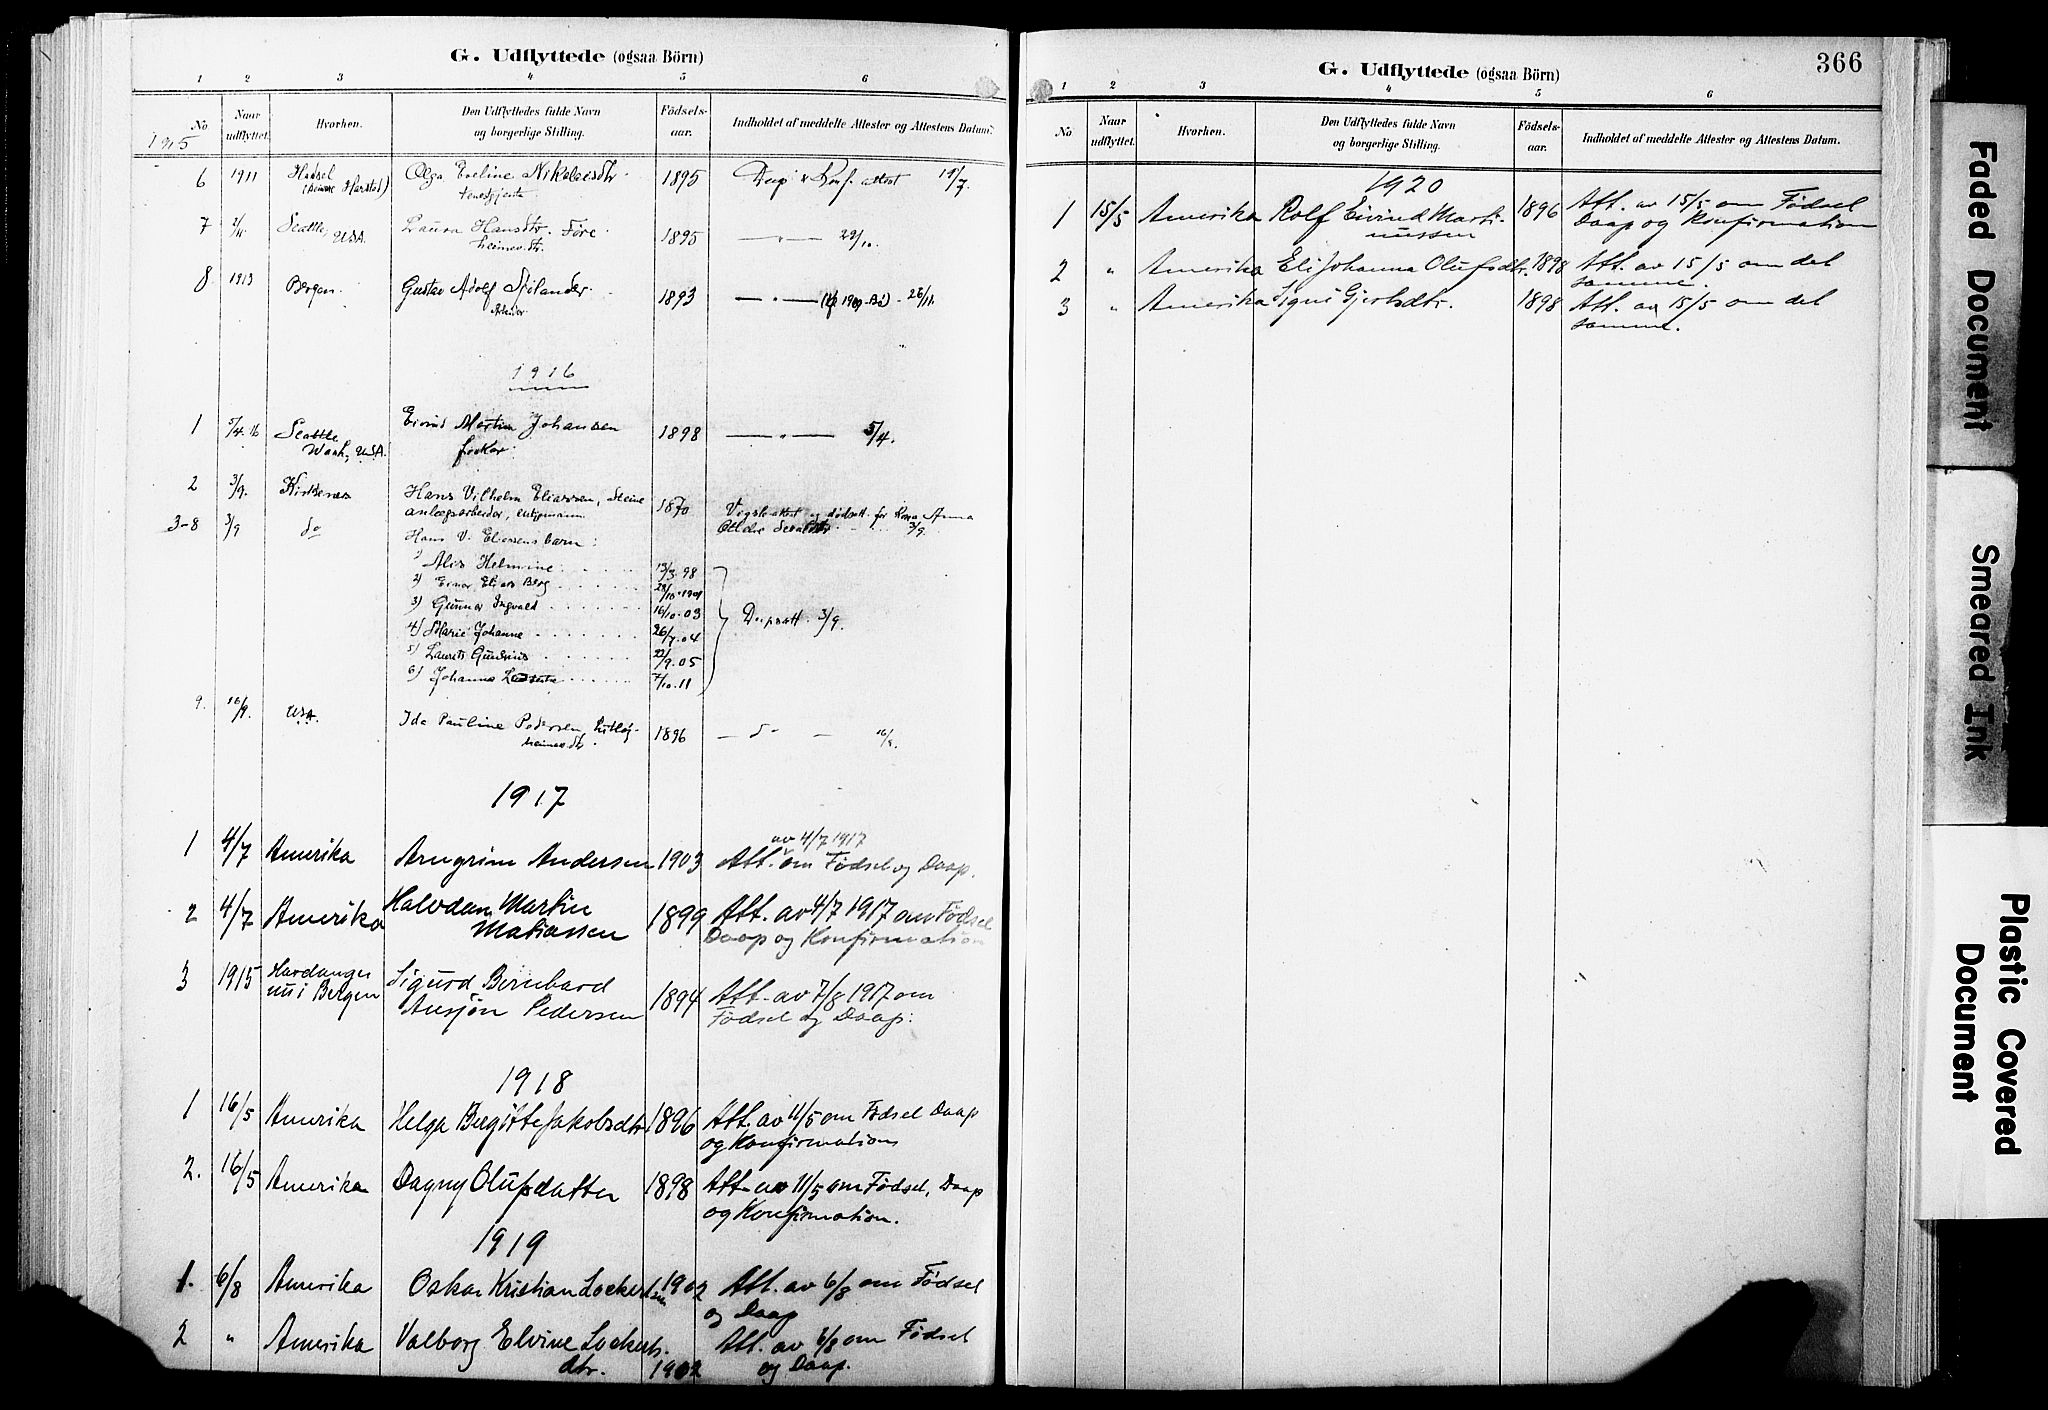 G. Udflyttede (ogsaa Börn)
1 2 3 4 5 6
No Naar udflyttet. Hvorhen. Den Udflyttedes fulde Navn og borgerlige Stilling. Födsels-aar. Indholdet af meddelte Attester og Attestens Datum.
1915
6 1911 Hadsel Olga Eveline 1895 Daap & Konf. attest
(Harstad) tenestgjenta
7 Seattle, USA. Laura Hansdtr. Føre 1895 — " — 29/10.
heimedtr.
8 1913 Bergen. Gustav Adolf 1893 — " — 26/11.
1916
1 5/4.16 Seattle Eivind Martin Johansen 1898 — " — 5/4.
Wash., USA. fisker
2 3/9. Kirkenes Hans Vilhelm Eliassen, Steine 1870
anlægsarbeider,
3-8 3/9 do Hans V. Eliassens barn:
1) Alis Helmine 13/3.98
2) Einar Elias Berg
3) Gunnar Ingvald 16/10.03 3/9.
4) Marie Johanne 26/7.04
5) Laurits 22/9.05
6) Johanna 7/10.11
9. 16/9. USA. Ida Pauline Pedersen, 1896 16/9.
heimedtr.
1917
av 4/7 1917
1 4/7 Amerika Arngrim Andersen 1903 Att. om Fødsel og Daap.
2 4/7 Amerika Halvdan Martin 1899 Att. av 4/7 1917 om Fødsel
Matiassen Daap og Konfirmation
3 1915 Hardanger Sigurd Bernhard 1894 Att. av 7/8 1917 om
nu i Bergen Ansjøn Pedersen Fødsel og Daap.
1918
1 16/5 Amerika Helga Bergitte Jakobsdtr 1896 Att. av 11/5 om Fødsel Daap
og Konfirmation
2. 16/5 Amerika Dagny Olufsdatter 1898 Att. av 11/5 om Fødsel, Daap
og Konfirmation.
1919
1. 6/8 Amerika Oskar Kristian 1902 Att. av 6/8 om Fødsel
og Daap
2 " Amerika Valborg Elvine Att. av 6/8 om Fødsel
dtr. 1902 og Daap.
366
G. Udflyttede (ogsaa Börn)
1 2 3 4 5 6
No Naar udflyttet. Hvorhen. Den Udflyttedes fulde Navn og borgerlige Stilling. Födsels-aar. Indholdet af meddelte Attester og Attestens Datum.
1920
1 15/5 Amerika Rolf Eivind Marti- 1896 Att. av 15/5 om Fødsel
nussen Daap og Konfirmation
2 " Amerika Eli Johanna Olufsdtr. 1898 Att. av 15/5 om det
samme.
3 " Amerika Signe 1898 Att. av 15/5 om det
samme.
Faded Document
Smeared Ink
Plastic Covered
Document